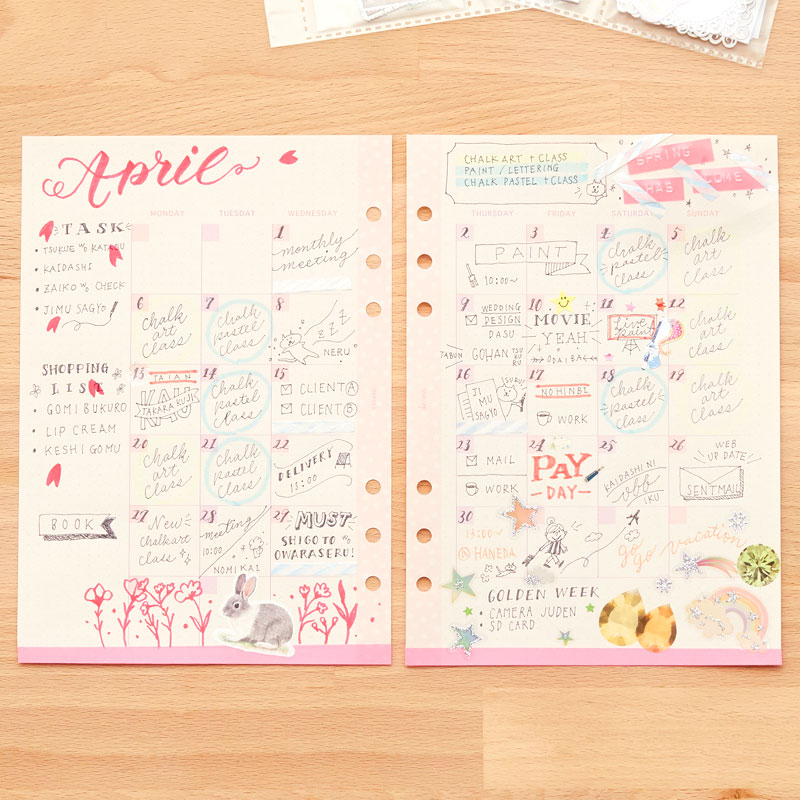 April
TASK
• TSUKUE W/O KATASU
• KAIDASHI
• ZAIKO W/O CHECK
• JIMU SAGYO
SHOPPING
LIST
• GOMIBUKURO
• LIP CREAM
• KESHI GOMU
BOOK
MONDAY
TUESDAY
WEDNESDAY
1
monthly
meeting
6
Chalk
art
class
7
Chalk
pastel
class
8
ZZZ
NERU
13
TAIAN
TAKARA KUJI
14
Chalk
pastel
class
15
CLIENT A
CLIENT B
20
Chalk
art
class
21
Chalk
pastel
class
22
DELIVERY
13:00
27
New
chalkart
class
28
meeting
10:00
NOMIKAI
29
MUST
SHIGOTO WO
OWARASERU!
CHALK ART + CLASS
PAINT / LETTERING
CHALK PASTEL + CLASS
SPRING
HAS COME
THURSDAY
FRIDAY
SATURDAY
SUNDAY
2
3
PAINT
10:00~
4
Chalk
pastel
class
5
Chalk
art
class
9
WEDDING
DESIGN
DASU
TABUN GOHAN TSUKURU
10
MOVIE
YEAH
ODAIBA
11
Live
paint
12
Chalk
art
class
16
JI
MU
SAGYO
17
NOHINBI
WORK
18
Chalk
pastel
class
19
Chalk
art
class
23
MAIL
WORK
24
PAY
-DAY-
25
KAIDASHI NI
IKU
26
WEB
UP DATE
SENTMAIL
30
13:00~
@ HANEDA
go go vacation
GOLDEN WEEK
• CAMERA JUDEN
• SD CARD